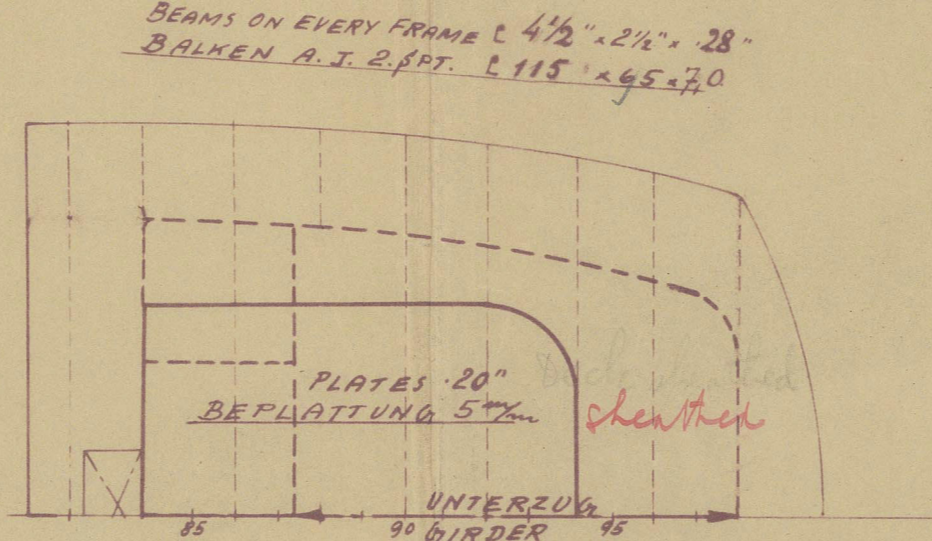 BEAMS ON EVERY FRAME [ 4½" × 2½" × .28"
BALKEN A. J. 2. SPT. [ 115 × 65 × 7,0
PLATES .20"
BEPLATTUNG 5 m/m
Deck sheathed
sheathed
UNTERZUG
85 90 95
GIRDER